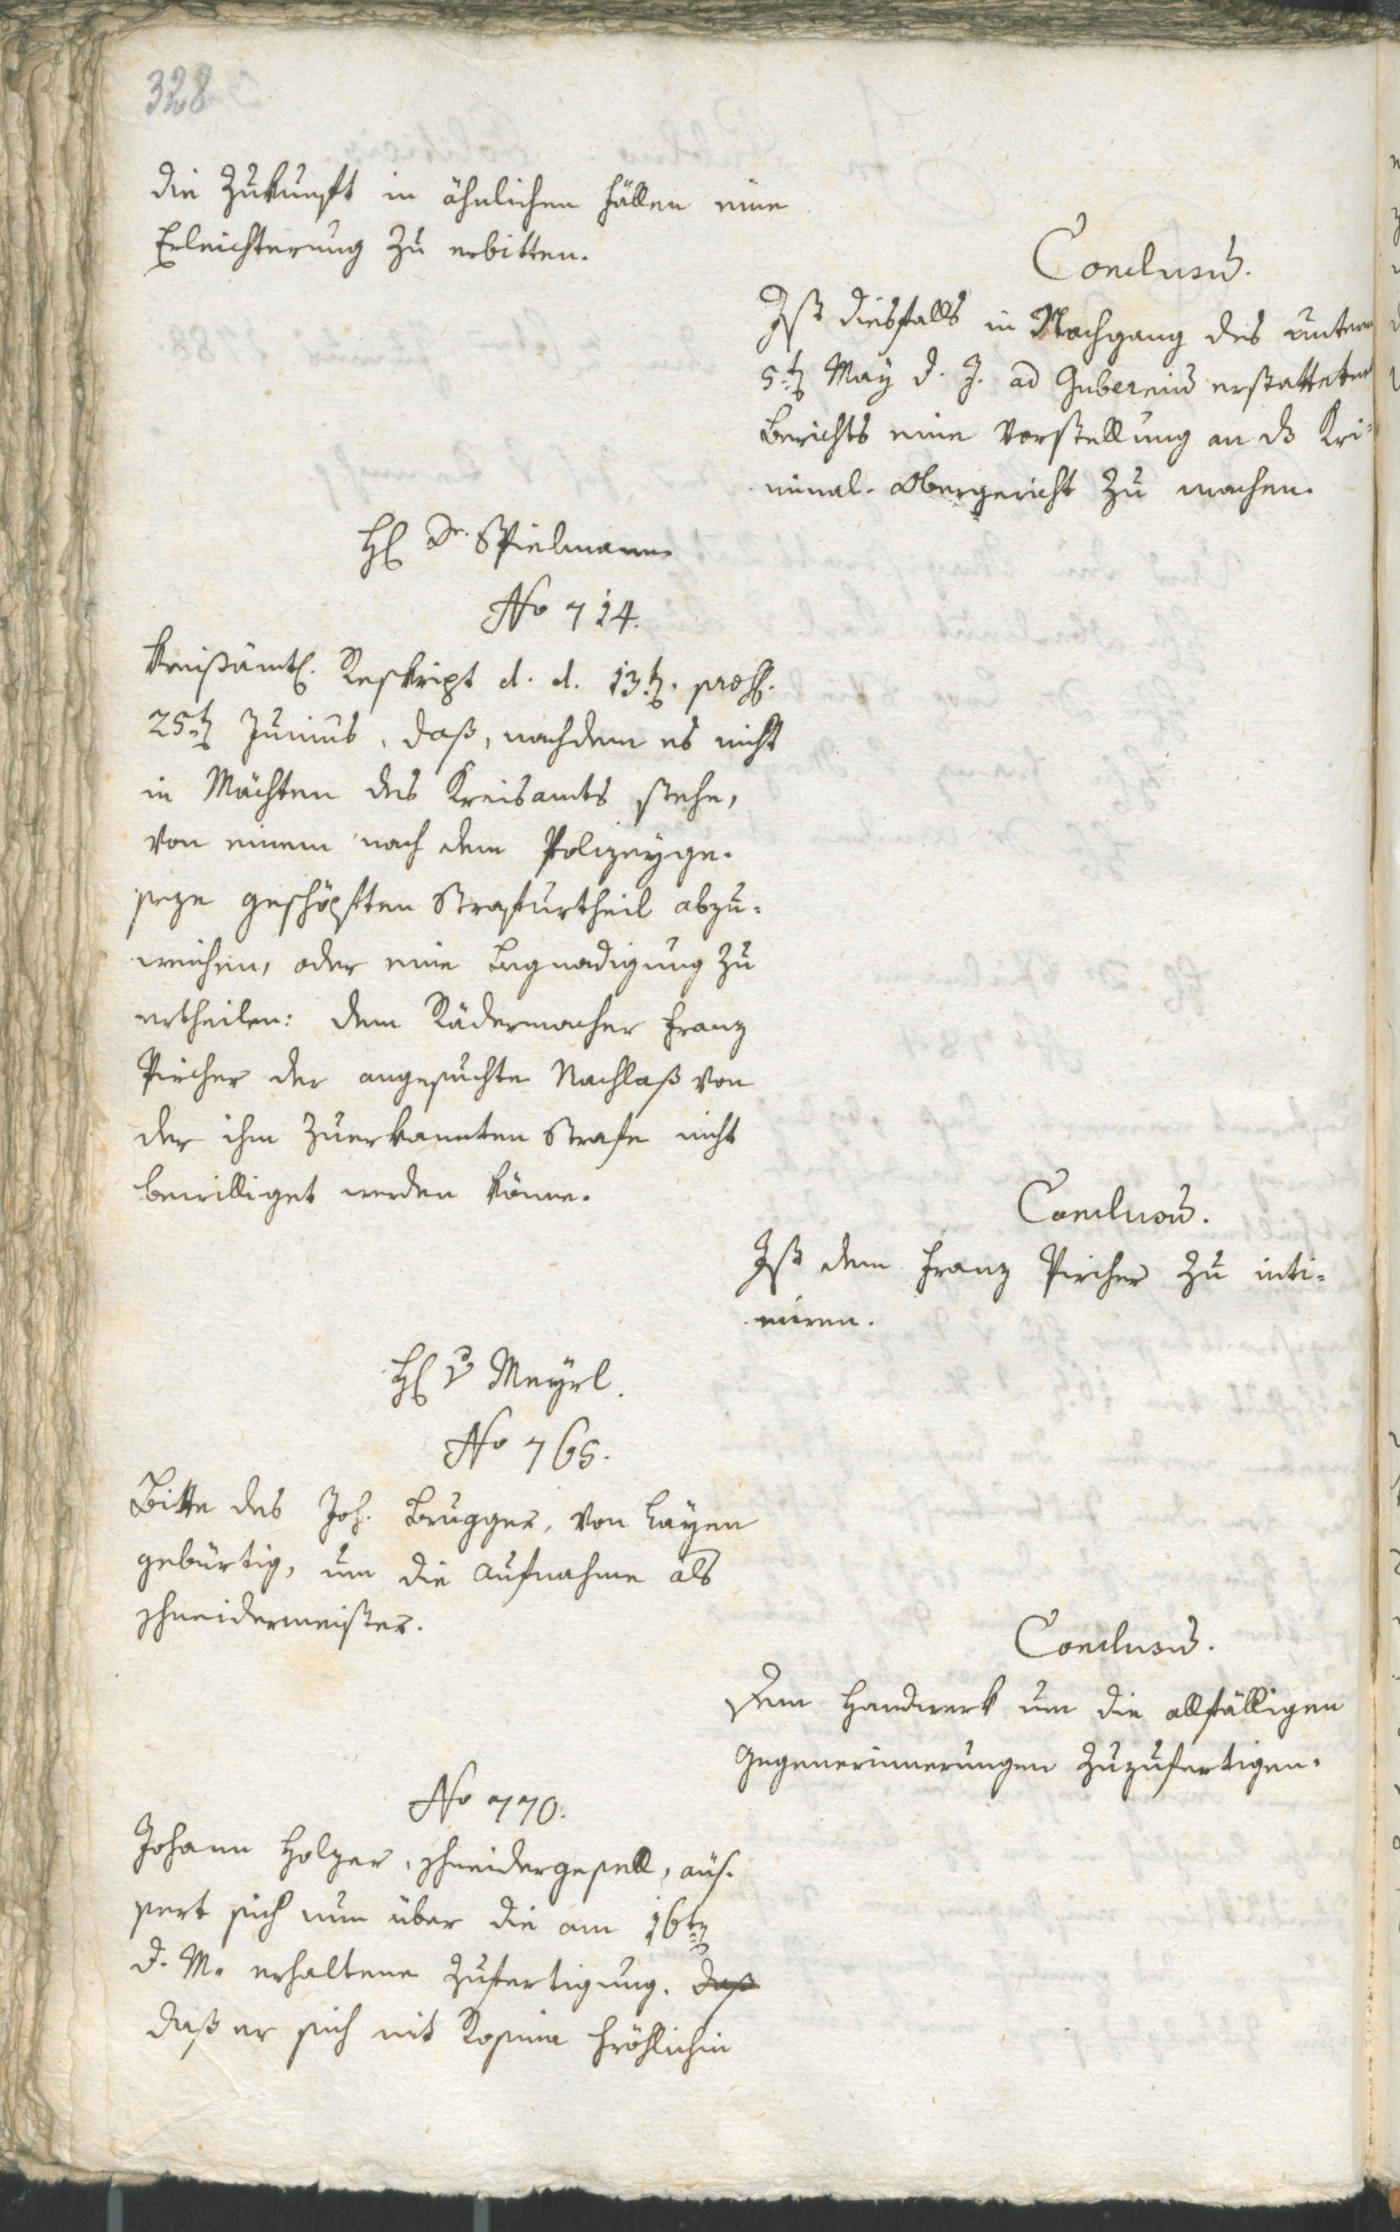 328
die Zukunft in ähnlichen Fällen eine
Erleichterung zu erbitten.
Conclusum.
Ist diesfalls in Nachgang des unterm
5t May d. J. ad Gubernium erstatteten
Berichts eine Vorstellung an das Kri-
minal-Obergericht zu machen.
H Dr. Spielmann
No 714.
Kreißämtl. Reskript d. d. 13t. praes.
25t Junius, daß, nachdem es nicht
in Mächten des Kreisamts stehe,
von einem nach dem Polizeyge-
seze geschöpften Strafurtheil abzu-
weichen, oder eine Begnadigung zu
ertheilen: dem Rädermacher Franz
Pircher der angesuchte Nachlaß von
der ihm zuerkannten Strafe nicht
bewilliget werden könne.
Conclusum.
Ist dem Franz Pircher zu inti-
miren.
H v Meyrl.
No 765.
Bitte des Joh. Brugger, von Layen
gebürtig, um die Aufnahme als
Schneidermeister.
Conclusum.
Dem Handwerk um die allfälligen
Gegenerinnerungen zuzufertigen.
No 770.
Johann Holzer, Schneidergesell, äus-
sert sich nun über die am 16t
d. M. erhaltene Zufertigung. daß
daß er sich mit Rosina Fröhlichin